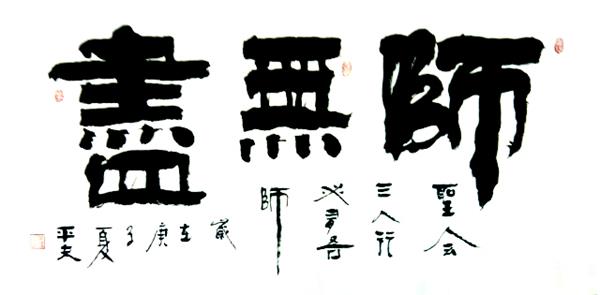 師無盡
聖人云
三人行
必有吾
師
歲在庚子夏
平夫